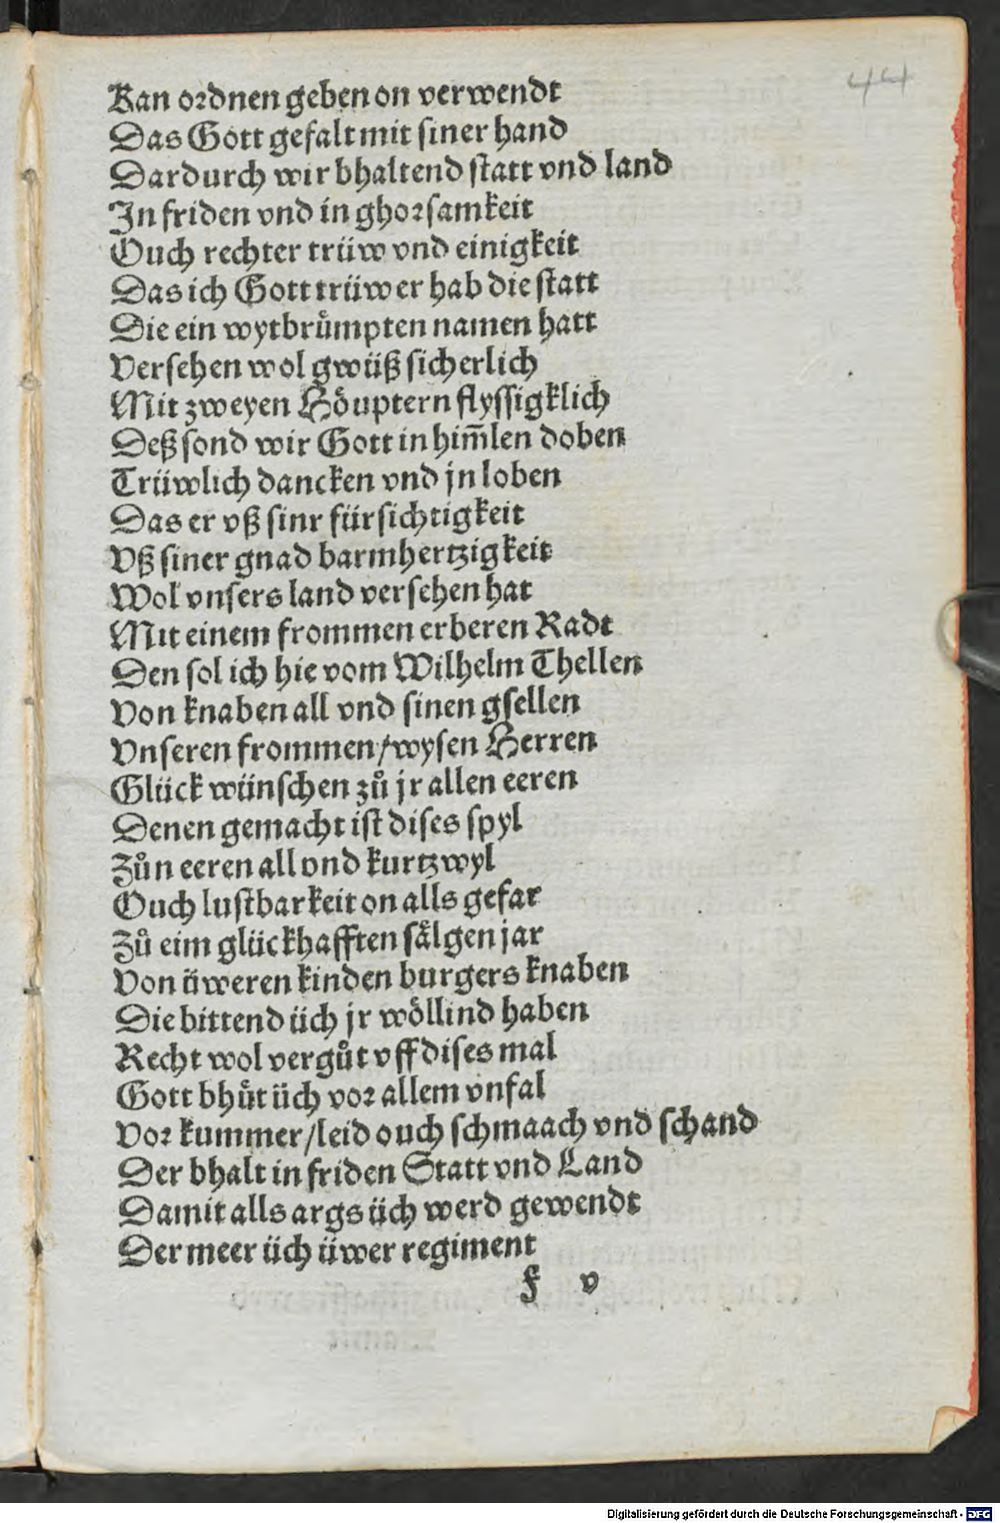 44
Kan ordnen geben on verwendt
Das Gott gefalt mit siner hand
Dardurch wir bhaltend statt vnd land
In friden vnd in ghorsamkeit
Ouch rechter trüw vnd einigkeit
Das ich Gott trüwer hab die statt
Die ein wytbrůmpten namen hatt
Versehen wol gwüß sicherlich
Mit zweyen Höuptern flyssigklich
Deß sond wir Gott in him̄len doben
Trüwlich dancken vnd jn loben
Das er vß sinr fürsichtigkeit
Vß siner gnad barmhertzigkeit
Wol vnsers land versehen hat
Mit einem frommen erberen Radt
Den sol ich hie vom Wilhelm Thellen
Von knaben all vnd sinen gsellen
Vnseren frommen/wysen Herren
Glück wünschen zů jr allen eeren
Denen gemacht ist dises spyl
Zůn eeren all vnd kurtzwyl
Ouch lustbarkeit on alls gefar
Zů eim glückhafften sålgen jar
Von üweren kinden burgers knaben
Die bittend üch jr wöllind haben
Recht wol vergůt vff dises mal
Gott bhůt üch vor allem vnfal
Vor kummer/leid ouch schmaach vnd schand
Der bhalt in friden Statt vnd Land
Damit alls args üch werd gewendt
Der meer üch üwer regiment
F v
Digitalisierung gefördert durch die Deutsche Forschungsgemeinschaft - DFG